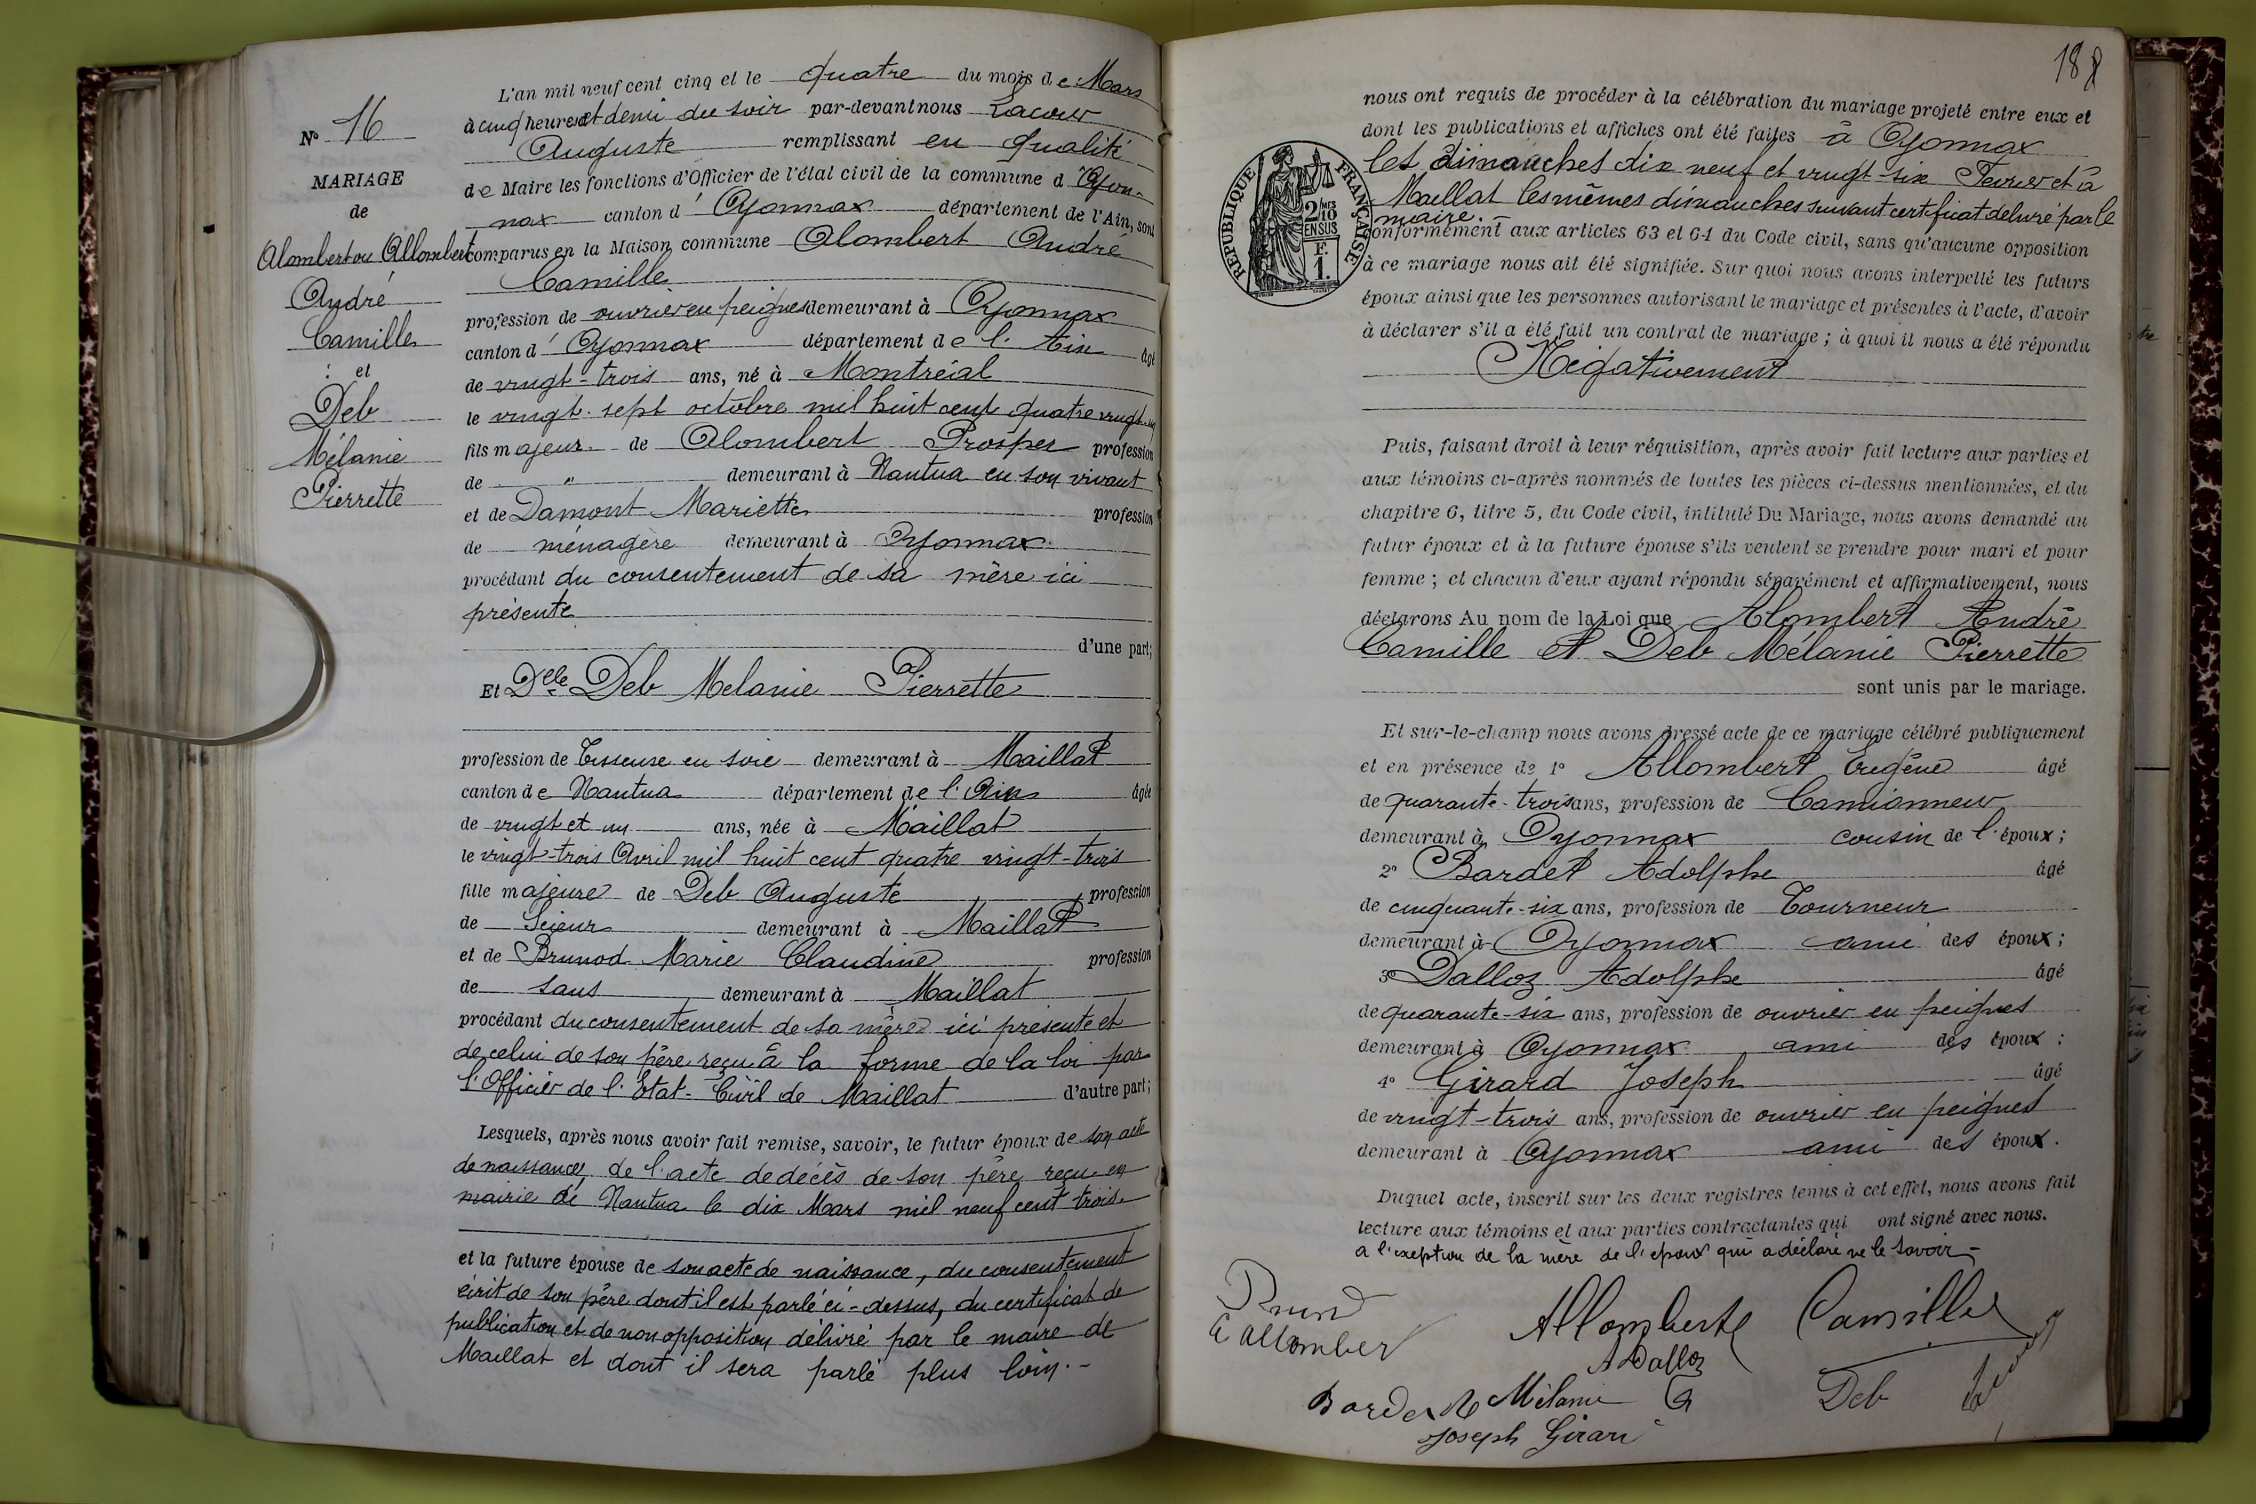 N° 16
MARIAGE
de
Alombert ou Allombert
André
Camille
et
Deb
Mélanie
Pierrette
L'an mil neuf cent cinq et le quatre du mois de Mars
à cinq heures et demi du soir par-devant nous Lacour
Auguste remplissant en qualité
de Maire les fonctions d'Officier de l'état civil de la commune d'Oyon-
nax canton d'Oyonnax département de l'Ain, sont
comparus en la Maison commune Alombert André
Camille
profession de ouvrier en peignes demeurant à Oyonnax
canton d'Oyonnax département de l'Ain âgé
de vingt-trois ans, né à Montréal
le vingt-sept octobre mil huit cent quatre vingt-un
fils majeur de Alombert Prosper profession
de " demeurant à Nantua en son vivant
et de Damont Mariette profession
de ménagère demeurant à Oyonnax
procédant du consentement de sa mère ici
présente
d'une part;
Et Delle Deb Melanie Pierrette
profession de Tisseuse en soie demeurant à Maillat
canton de Nantua département de l'Ain âgée
de vingt et un ans, née à Maillat
le vingt-trois Avril mil huit cent quatre vingt-trois
fille majeure de Deb Auguste profession
de Scieur demeurant à Maillat
et de Brunod Marie Claudine profession
de sans demeurant à Maillat
procédant du consentement de sa mère ici présente et
de celui de son père reçu à la forme de la loi par
l'Officier de l'Etat-Civil de Maillat d'autre part;
Lesquels, après nous avoir fait remise, savoir, le futur époux de son acte
de naissance, de l'acte de décès de son père reçu en
mairie de Nantua le dix Mars mil neuf cent trois.
et la future épouse de son acte de naissance, du consentement
écrit de son père dont il est parlé ci-dessus, du certificat de
publication et de non opposition délivré par le maire de
Maillat et dont il sera parlé plus loin.-
188
nous ont requis de procéder à la célébration du mariage projeté entre eux et
dont les publications et affiches ont été faites à Oyonnax
les dimanches dix neuf et vingt-six Fevrier et à
Maillat les mêmes dimanches suivant certificat délivré par le
maire.
conformément aux articles 63 et 64 du Code civil, sans qu'aucune opposition
à ce mariage nous ait été signifiée. Sur quoi nous avons interpellé les futurs
époux ainsi que les personnes autorisant le mariage et présentes à l'acte, d'avoir
à déclarer s'il a été fait un contrat de mariage ; à quoi il nous a été répondu
Négativement
RÉPUBLIQUE FRANÇAISE
2/10 EN SUS
F. 1.
Puis, faisant droit à leur réquisition, après avoir fait lecture aux parties et
aux témoins ci-après nommés de toutes les pièces ci-dessus mentionnées, et du
chapitre 6, titre 5, du Code civil, intitulé Du Mariage, nous avons demandé au
futur époux et à la future épouse s'ils veulent se prendre pour mari et pour
femme ; et chacun d'eux ayant répondu séparément et affirmativement, nous
déclarons Au nom de la Loi que Alombert André
Camille et Deb Mélanie Pierrette
sont unis par le mariage.
Et sur-le-champ nous avons dressé acte de ce mariage célébré publiquement
et en présence de 1° Allombert Eugène âgé
de quarante-trois ans, profession de Camionneur
demeurant à Oyonnax cousin de l'époux ;
2° Bardet Adolphe âgé
de cinquante-six ans, profession de Tourneur
demeurant à Oyonnax ami des époux ;
3° Dalloz Adolphe âgé
de quarante-six ans, profession de ouvrier en peignes
demeurant à Oyonnax ami des époux ;
4° Girard Joseph âgé
de vingt-trois ans, profession de ouvrier en peignes
demeurant à Oyonnax ami des époux.
Duquel acte, inscrit sur les deux registres tenus à cet effet, nous avons fait
lecture aux témoins et aux parties contractantes qui ont signé avec nous.
a l'exeption de la mère de l'epoux qui a déclaré ne le savoir-
Allomberte Camille
E allomber
A Dalloz
Bardet Mélanie Deb
Joseph Girard